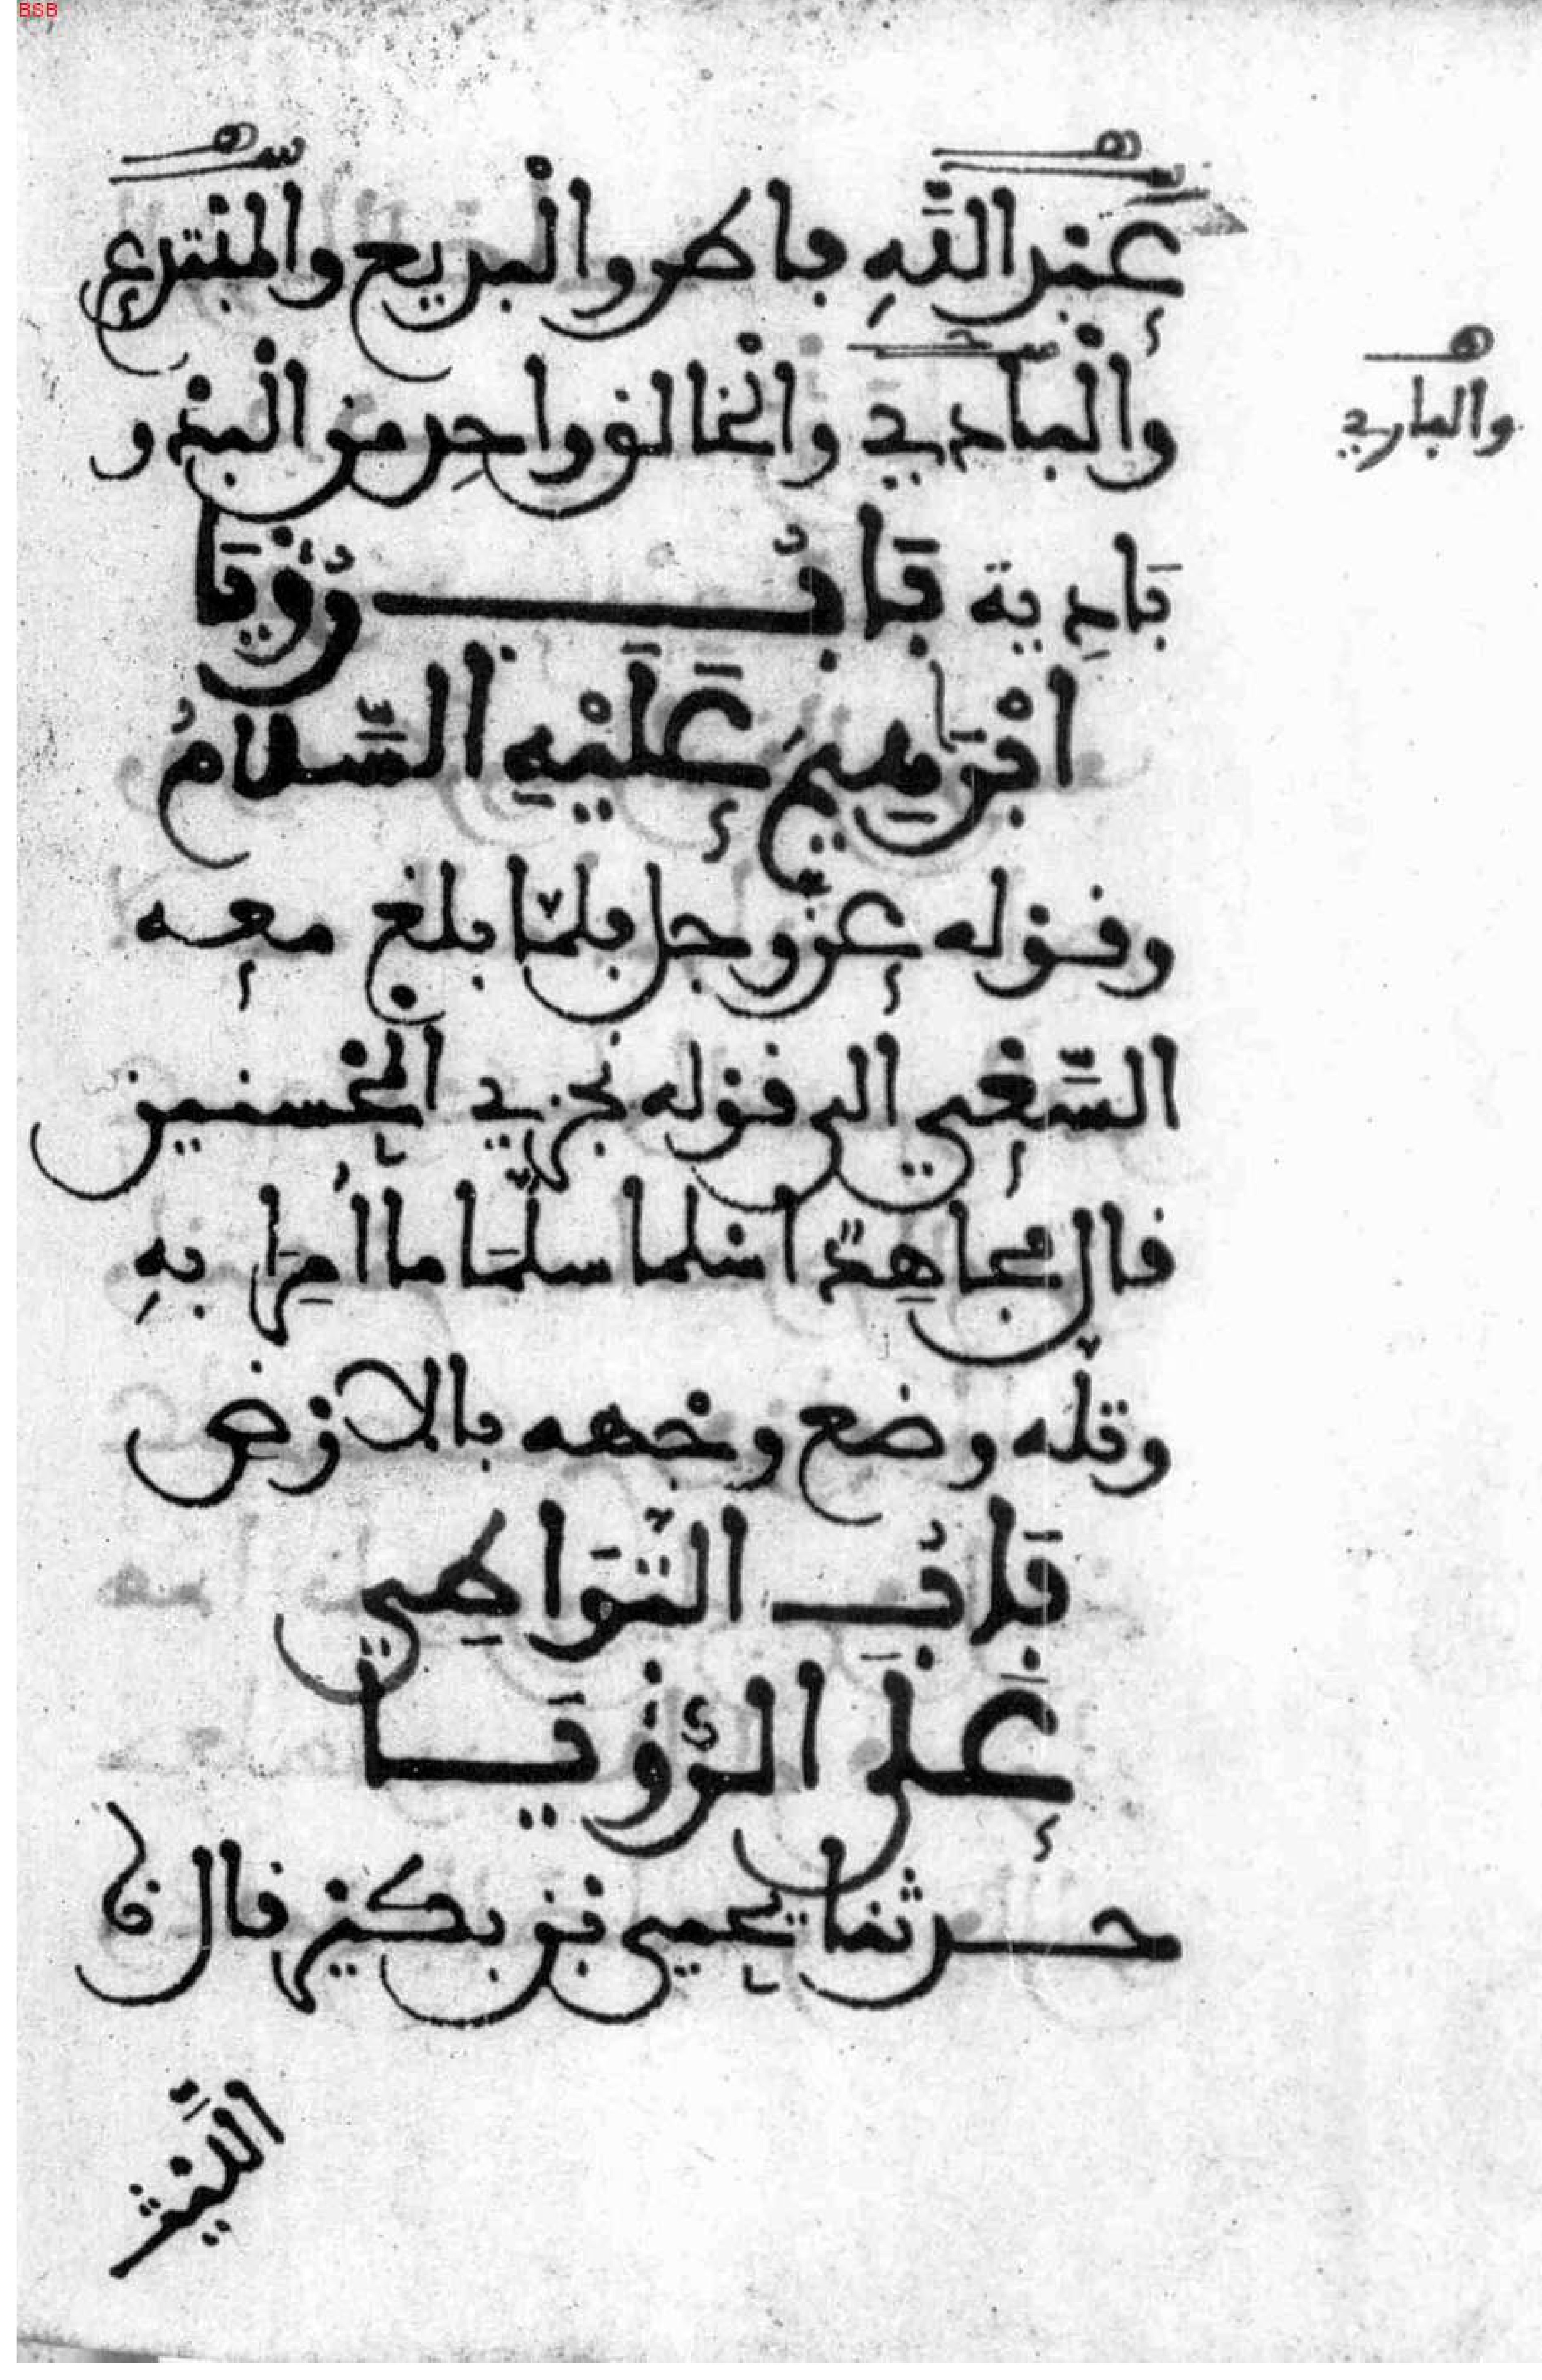 BSB
عَبْد اللَّهِ فاطر والْبديع والمبْتدع
وَالْبَادِي وَالْخَالق واحِد من الْبدْو
والباري
بَادِية بَابُ رُؤْيَا
ابْرَاهِيمَ عَلَيْهِ السَّلامُ
وقوله عزّ وجل فلمّا بلغ معه
السَّعْي الى قوله نجزي الْمحْسنين
قال مجاهِدٌ اسْلما سلَّمَا ما أُمِرَا بهِ
وتلّه وضع وجْهه بالارْض
بَابُ التَّوَاطِي
عَلَى الرُّؤْيَا
حدثنا يحيى بْن بكيْر قال نا
اللَّيْث